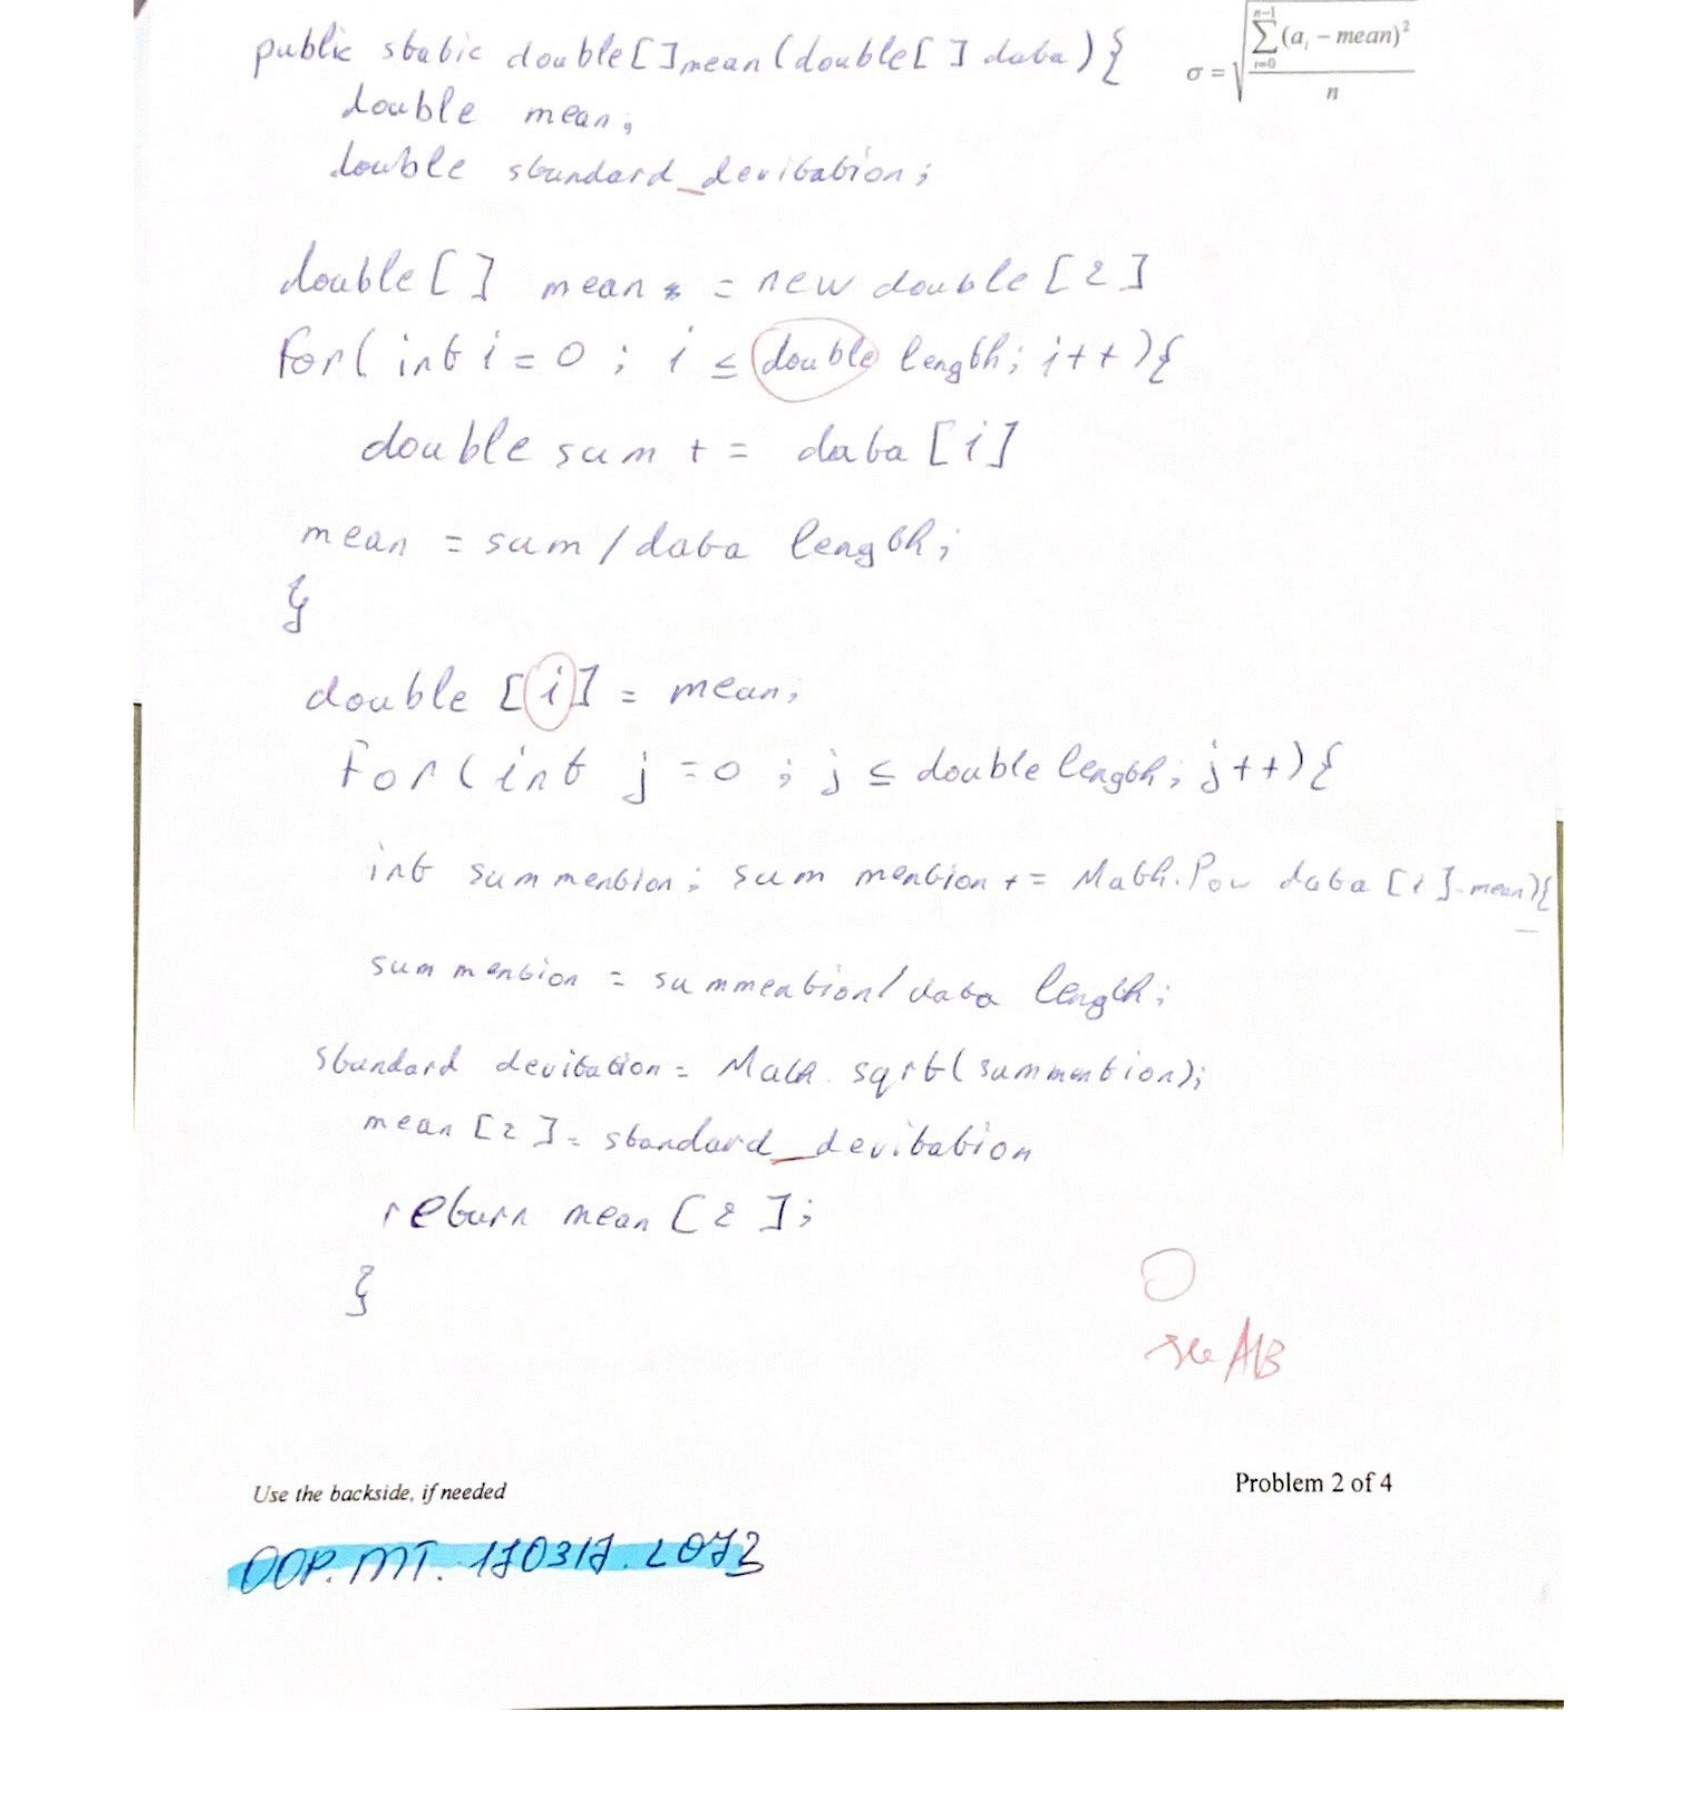 public static double[] mean(double[] data){
σ = √ n-1 ∑ i=0 (aᵢ – mean)² / n
double mean;
double standard_devitation;
double[] mean = new double[2]
for(int i=0; i ≤ double length; i++){
double sum += data[i]
mean = sum/data length;
}
double [i] = mean;
for(int j=0; j ≤ double length; j++){
int summention; summention += Math.Pow data[i]-mean){
summention = summention/data length;
standard devitation = Math.sqrt(summention);
mean[2] = standard_devitation
return mean[2];
}
0
see AB
Use the backside, if needed
Problem 2 of 4
OOP.MT.170317.L073